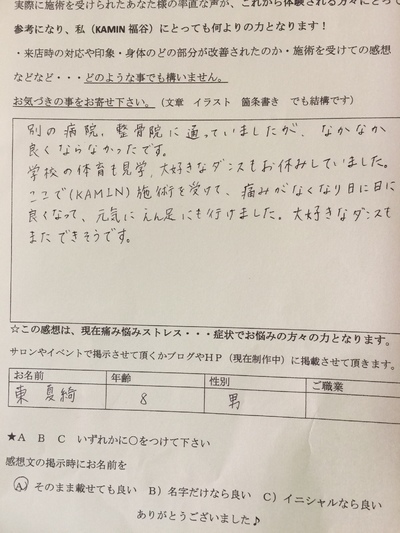 実際に施術を受けられたあなた様の率直な声が、これから体験される方々にとって
参考になり、私（KAMIN 福谷）にとっても何よりの力となります！
・来店時の対応や印象・身体のどの部分が改善されたのか・施術を受けての感想
などなど・・・どのような事でも構いません。
お気づきの事をお寄せ下さい。（文章 イラスト 箇条書き でも結構です）
別の病院、整骨院に通っていましたが、なかなか
良くならなかったです。
学校の体育も見学、大好きなダンスもお休みしていました。
ここで(KAMIN)施術を受けて、痛みがなくなり日に日に
良くなって、元気にえん足にも行けました。大好きなダンスも
またできそうです。
☆この感想は、現在痛み悩みストレス・・・症状でお悩みの方々の力となります。
サロンやイベントで掲示させて頂くかブログやＨＰ（現在制作中）に掲載させて頂きます。
お名前 年齢 性別 ご職業
東 夏綺 8 男
★Ａ Ｂ Ｃ いずれかに○をつけて下さい
感想文の掲示時にお名前を
Ａ）そのまま載せても良い Ｂ）名字だけなら良い Ｃ）イニシャルなら良い
ありがとうございました♪